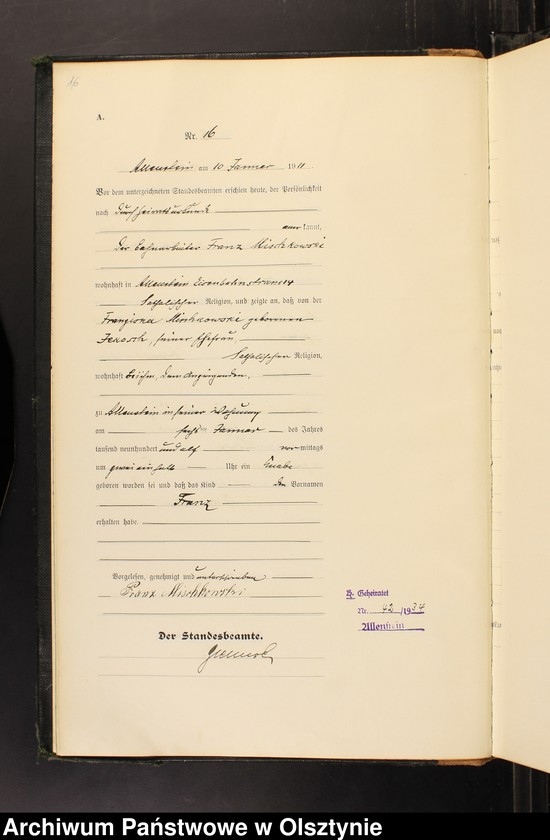 16
A.
Nr. 16
Allenstein am 10 Januar 1911
Vor dem unterzeichneten Standesbeamten erschien heute, der Persönlichkeit
nach durch Heiratsurkunde
anerkannt,
der Bahnarbeiter Franz Mischkowski
wohnhaft in Allenstein Eisenbahnstrasse
katholischer Religion, und zeigte an, daß von der
Franziska Mischkowski geborenen
seiner Ehefrau,
katholischer Religion,
wohnhaft bei ihm, dem Anzeigenden,
zu Allenstein in seiner Wohnung
am sechs Januar des Jahres
tausend neunhundert und elf vormittags
um zwei ein halb Uhr ein Knabe
geboren worden sei und daß das Kind den Vornamen
Franz
erhalten habe.
Vorgelesen, genehmigt und unterschrieben
Franz Mischkowski
Der Standesbeamte.
Geheiratet
Nr. 42/1934
Allenstein
Archiwum Państwowe w Olsztynie